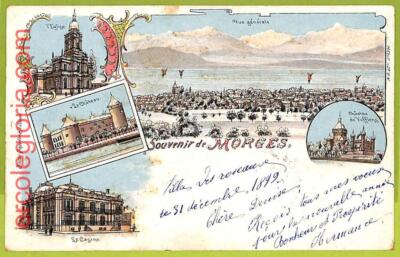 l'Eglise
Vue générale
Le Château
Château de Vufflens
Souvenir de MORGES.
Le Casino
Villa des roseaux
le 31 décembre 1899
Chère Denise,
Reçois tous mes vœux
pour la nouvelle année
Bonheur et Prospérité
Hermance
arcolegtoria.com